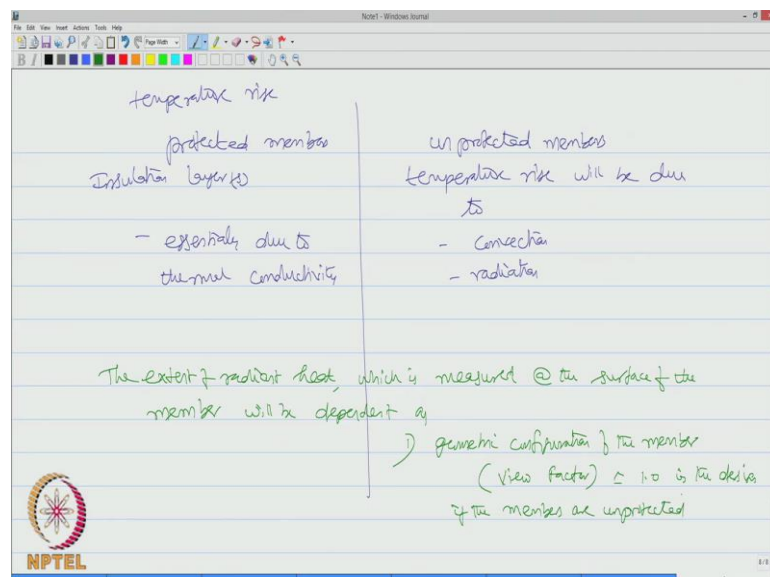 Note1 - Windows Journal
File Edit View Insert Actions Tools Help
Page Width
B I
temperature rise
protected member
Insulation layer(s)
- essentially due to
thermal conductivity
un protected members
temperature rise will be due
to
- convection
- radiation
The extent of radiant heat, which is measured @ the surface of the
member will be dependent on
1) geometric configuration of the member
(view factor) = 1.0 in the design
if the members are unprotected
NPTEL
8/8